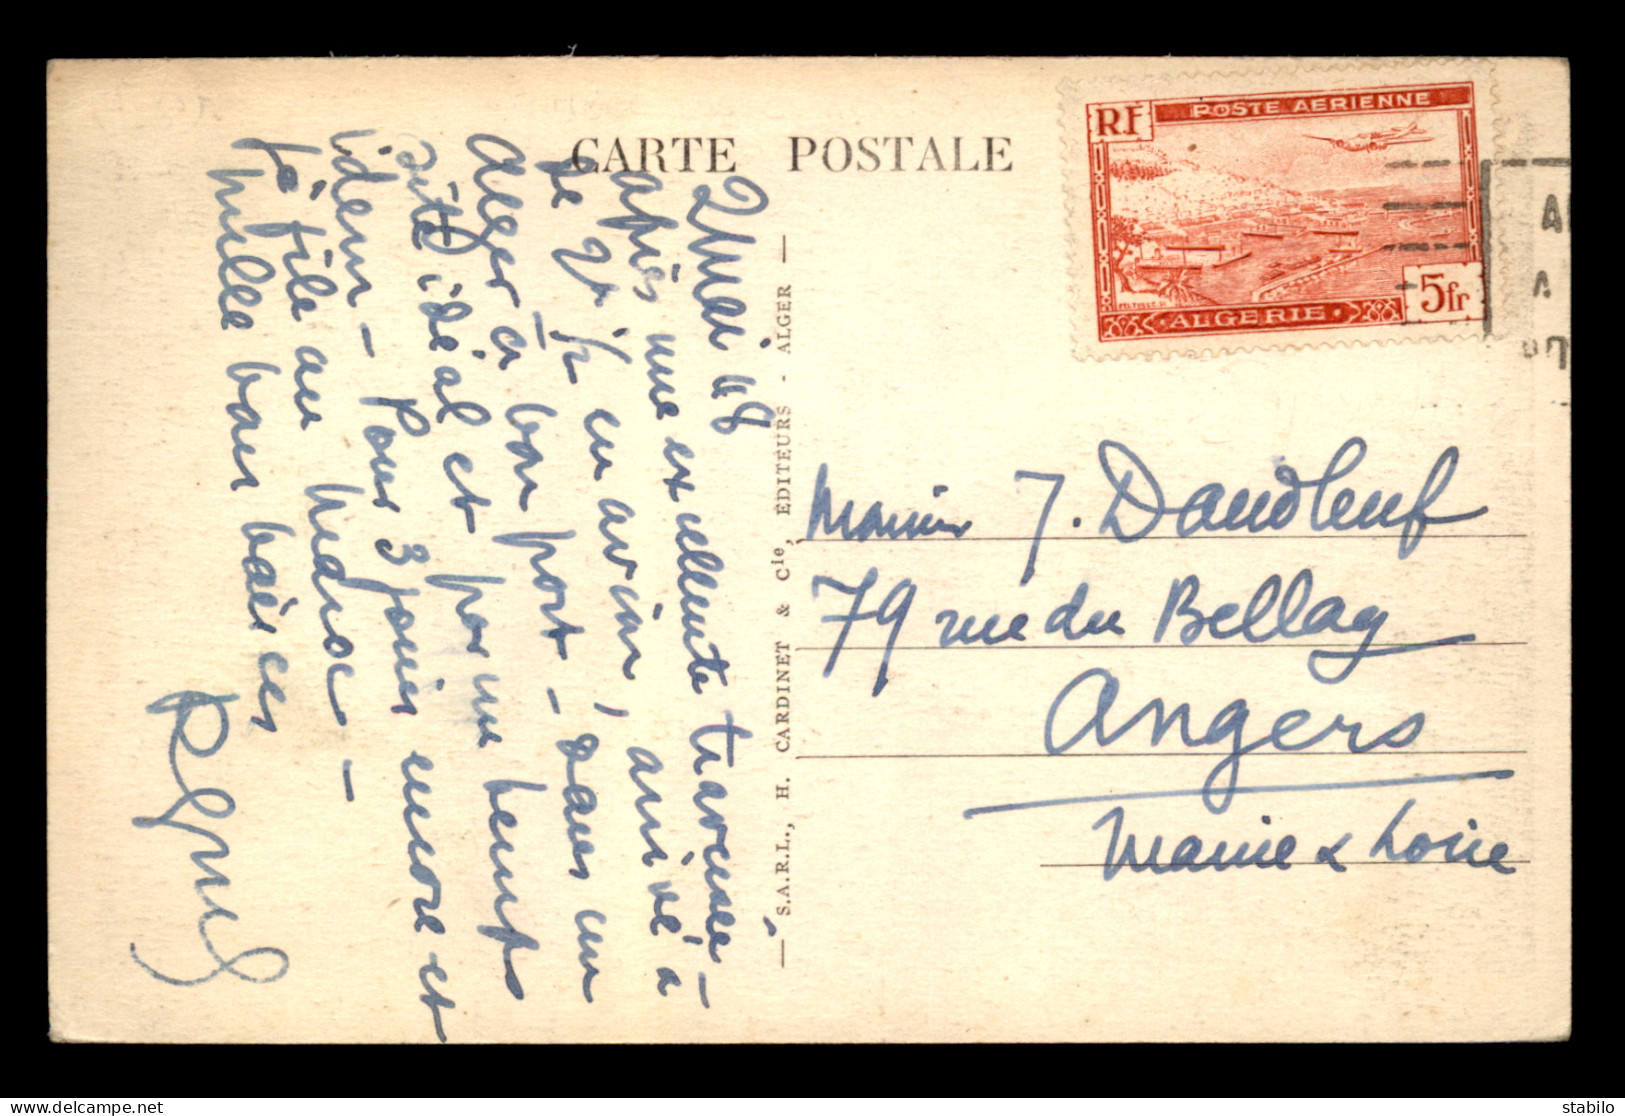 CARTE POSTALE
RF
POSTE AERIENNE
5fr
ALGERIE
2 mai 48
après une excellente traversée
de 2h ½ en avion, arrivé à
Alger à bon port - dans un
site idéal et par un temps
idem - Pour 3 jours encore et
je file au Maroc -
mille bons baisers
— S.A.R.L., H. CARDINET & Cie, EDITEURS - ALGER —
J. Dandleuf
79 rue du Bellay
Angers
Maine & Loire
stabilo